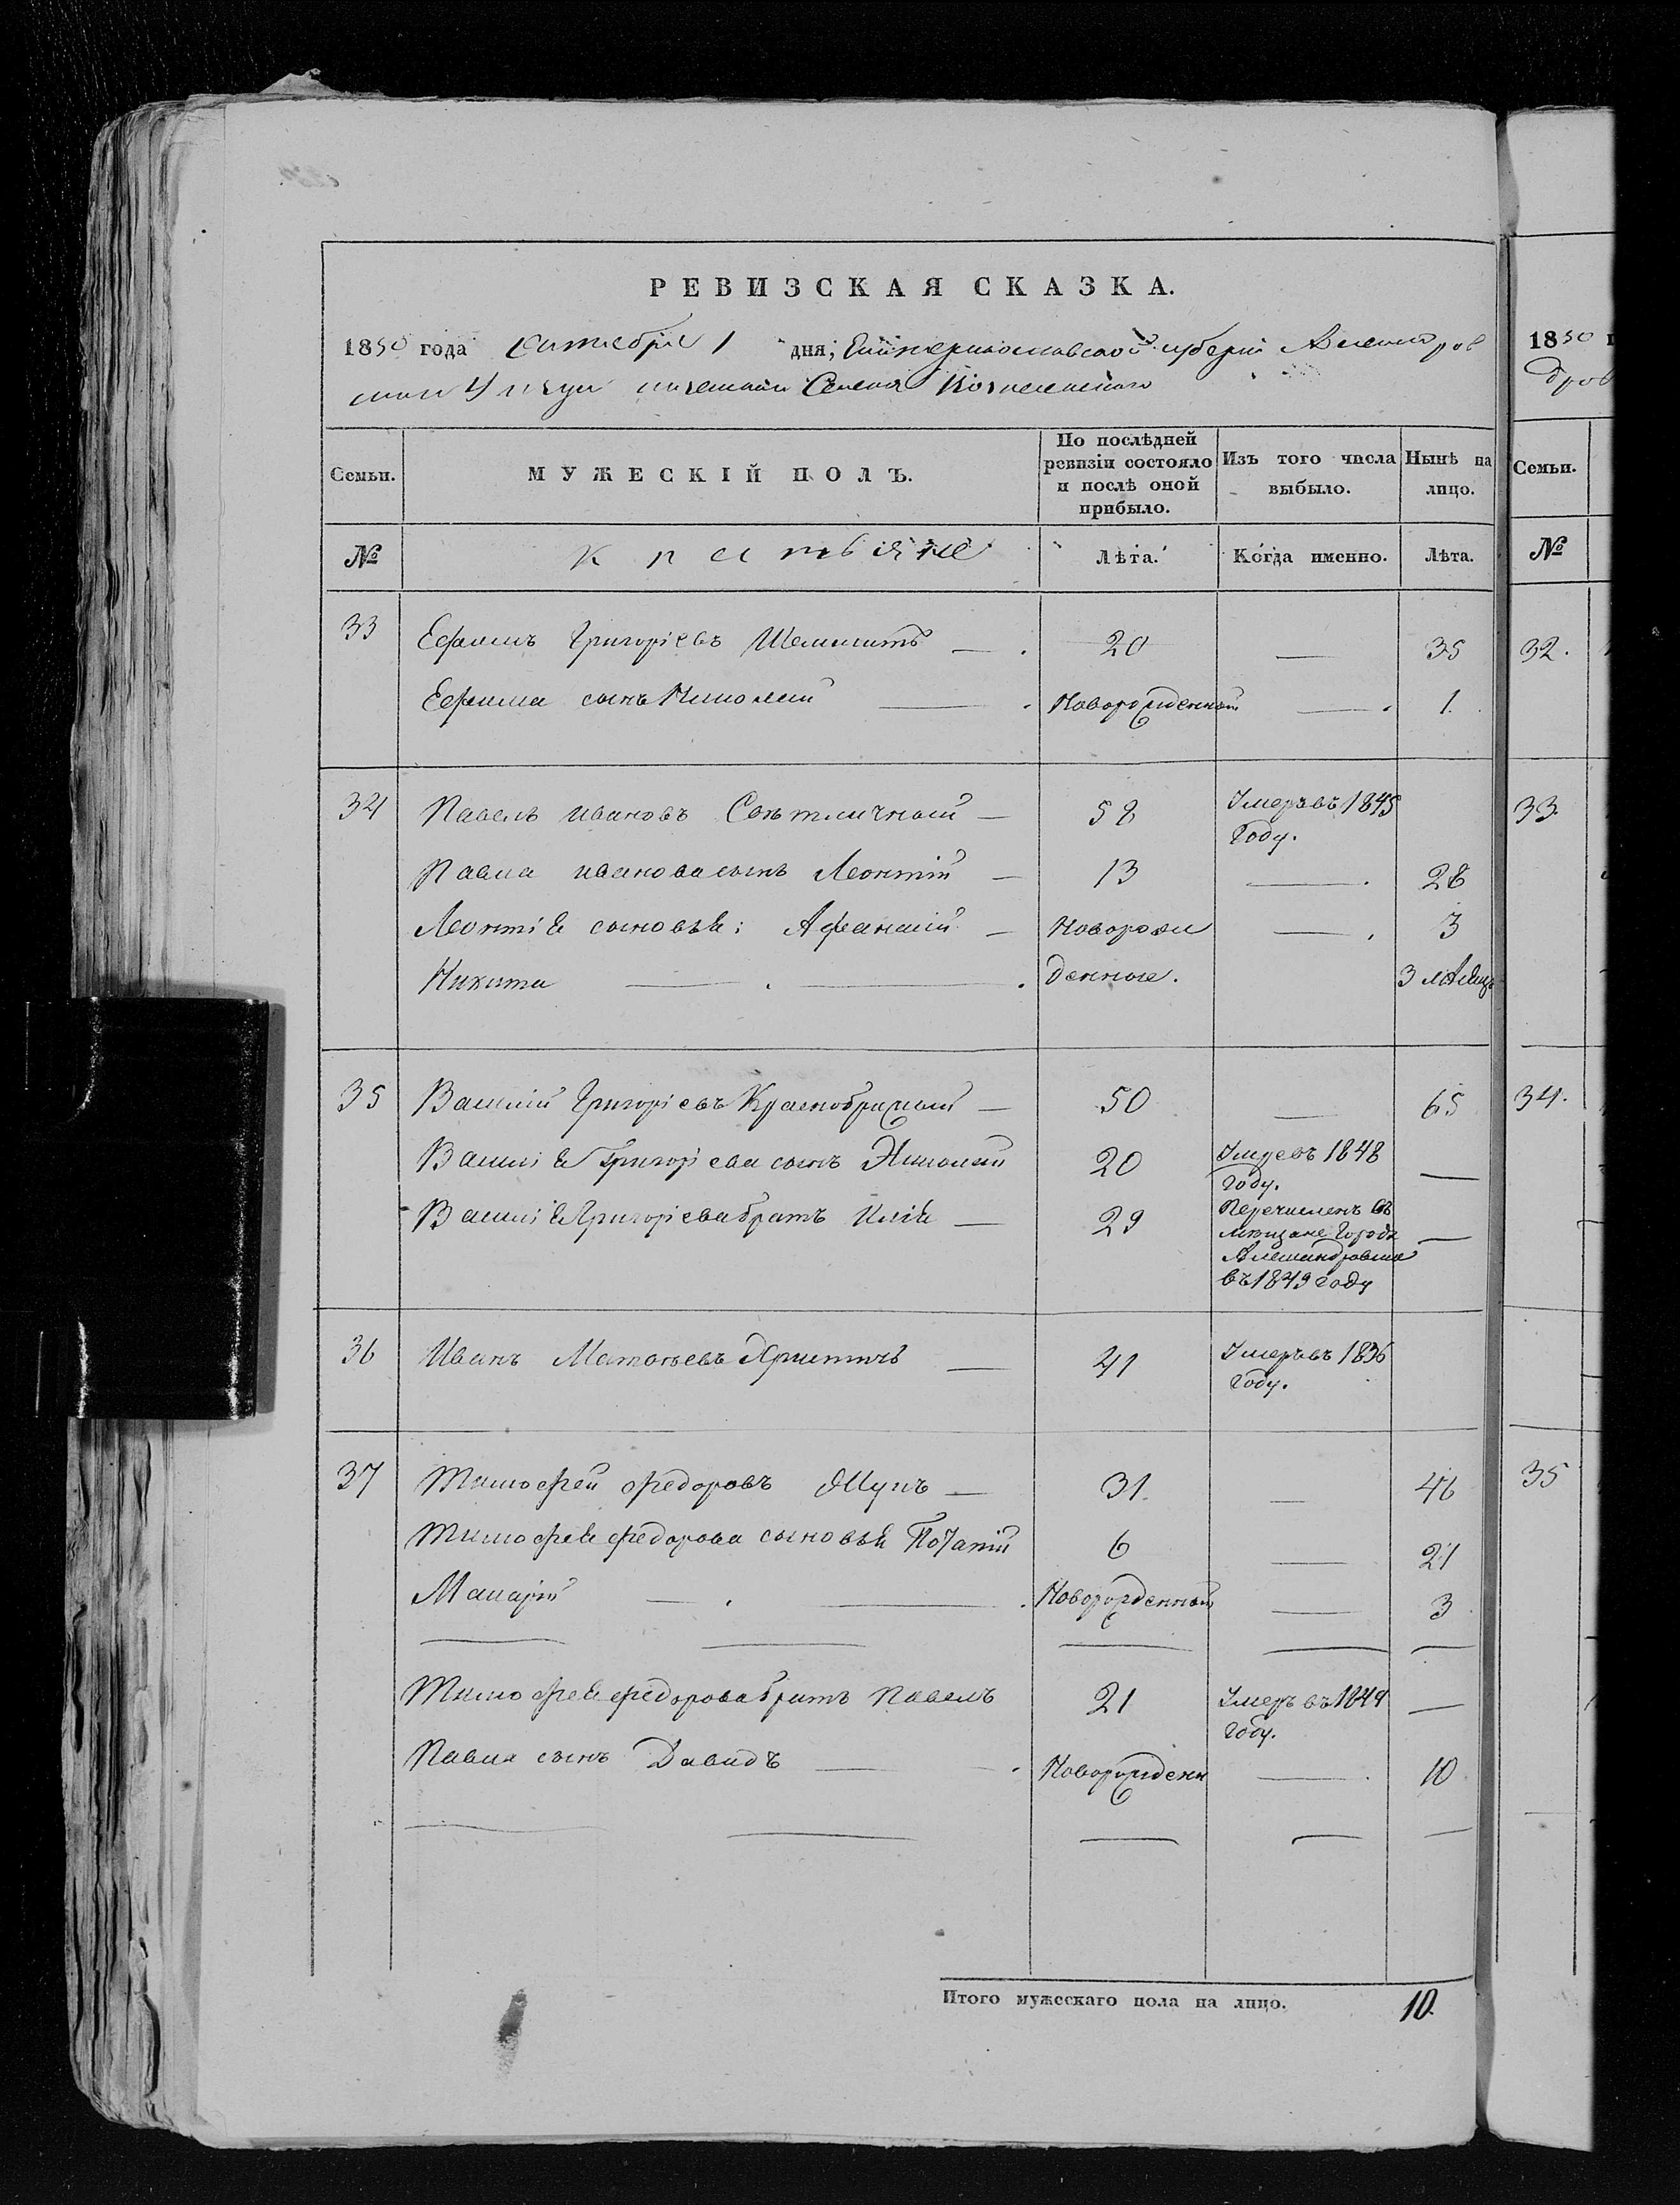 РЕВИЗСКАЯ СКАЗКА.
1850 года Сентября 1 дня, Екатеринославской губерніи Александров
Села Вознесенскаго
Семьи.
МУЖЕСКІЙ ПОЛЪ.
По послѣдней ревизіи состояло и послѣ оной прибыло.
Изъ того числа выбыло.
Нынѣ на лицо.
№ Крестьяне Лѣта. Когда именно. Лѣта.
33 Ефимъ Григорієвъ 20 — 35
Ефима сынъ Николай — Новорожденный — 1
34 Павелъ Ивановъ Свѣтличный — 58 Умеръ въ 1845 Году.
Павла Иванова сынъ Леонтій — 13 — 28
Леонтія сыновья: Афанасій — Новорож — 3
Никита — денные. 3 мѣсяц
35 Василій Григорієвъ — 50 — 65
Василія Григорієва сынъ Николай 20 Умре въ 1848 Году. —
Василія Григорієва братъ Илія — 29 Перечисленъ въ мѣщане Города Александровска въ 1849 году —
36 Иванъ Матвѣевъ — 41 Умеръ въ 1836 Году.
37 Тимофей Федоровъ — 31 — 46
Тимофея Федорова сыновья Потапій 6 — 21
Макарій — Новорожденный — 3
Тимофея Федорова братъ Павелъ 21 Умеръ въ 1849 Году. —
Павла сынъ Давидъ — Новорожден — 10
Итого мужескаго пола на лицо. 10.
1850
дров
Семьи.
№
32.
33.
34.
35